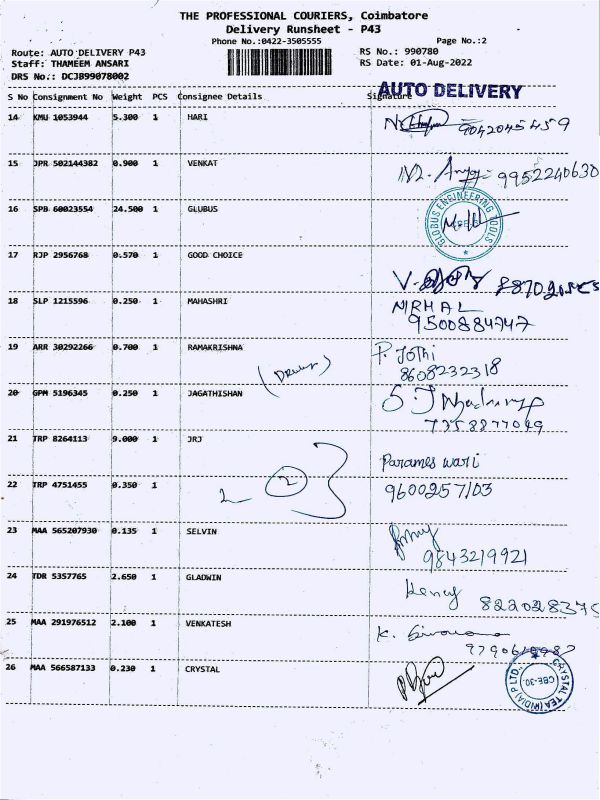 THE PROFESSIONAL COURIERS, Coimbatore
Delivery Runsheet - P43
Phone No.:0422-3505555 Page No.:2
Route: AUTO DELIVERY P43 RS No.: 990780
Staff: THAMEEM ANSARI RS Date: 01-Aug-2022
DRS No.: DCJB99078002
AUTO DELIVERY
S No Consignment No Weight PCS Consignee Details Signature
14 KMU 1053944 5.300 1 HARI 9042045459
15 JPR 502144382 0.900 1 VENKAT 9952240630
16 SPB 60023554 24.500 1 GLUBUS
GLOBUS ENGINEERING TOOLS
17 RJP 2956768 0.570 1 GOOD CHOICE
18 SLP 1215596 0.250 1 MAHASHRI NIRMAL
9500884747
19 ARR 30292266 0.700 1 RAMAKRISHNA P. Jothi
8608232318
20 GPM 5196345 0.250 1 JAGATHISHAN
7358877049
21 TRP 8264113 9.000 1 JRJ Parameswari
22 TRP 4751455 0.350 1 2 9600257103
23 MAA 565207930 0.135 1 SELVIN
9843219921
24 TDR 5357765 2.650 1 GLADWIN
822028375
25 MAA 291976512 2.100 1 VENKATESH
26 MAA 566587133 0.230 1 CRYSTAL
CRYSTAL TEA (INDIA) P LTD
CBE-30.